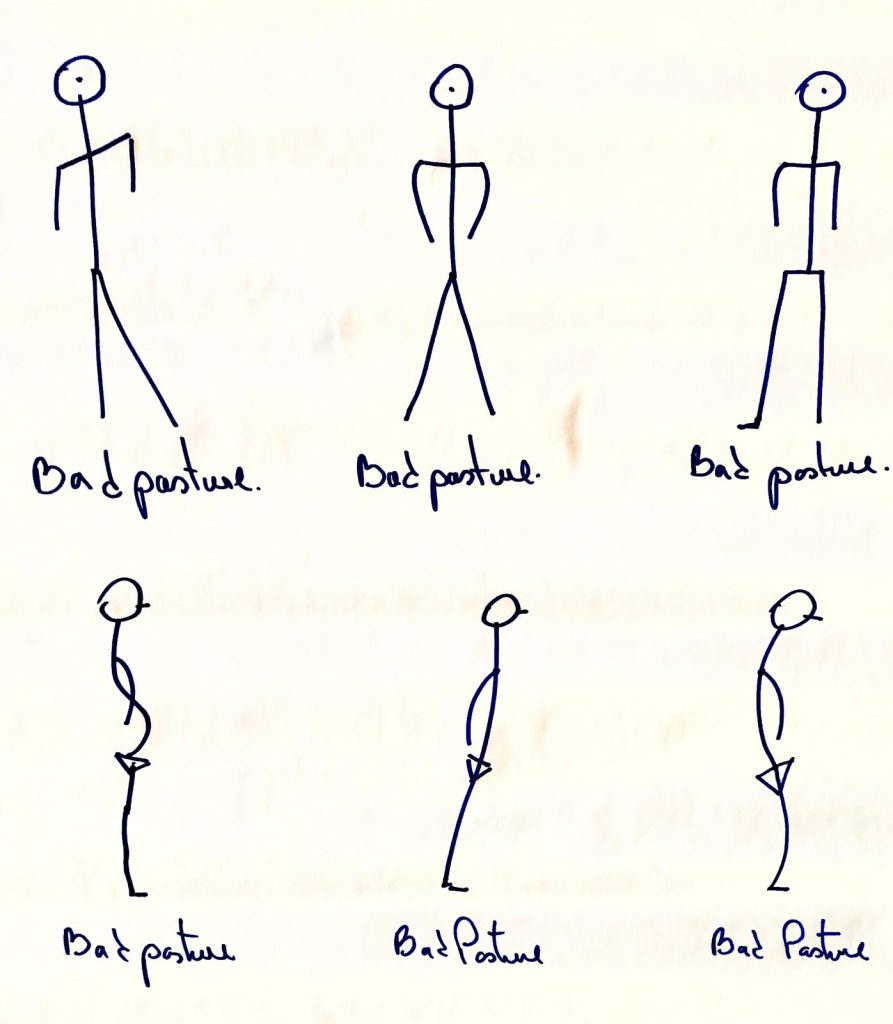 Bad posture. Bad posture. Bad posture.
Bad posture Bad Posture Bad Posture